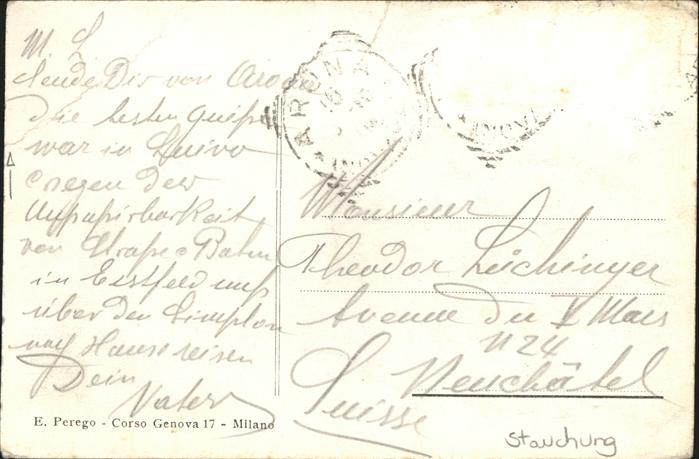 M. L
sende Dir von Arona
die besten Grüße
war in Luino
wegen der
Unpassirbarkeit
von Straße Bahn
in Erstfeld muß
über den Simplon
nach Hause reisen
Dein
Vater
E. Perego - Corso Genova 17 - Milano
ARONA
Monsieur
Theodor Lüchinger
Avenue du 1 Mars
N 24
Neuchâtel
Suisse
Stauchung